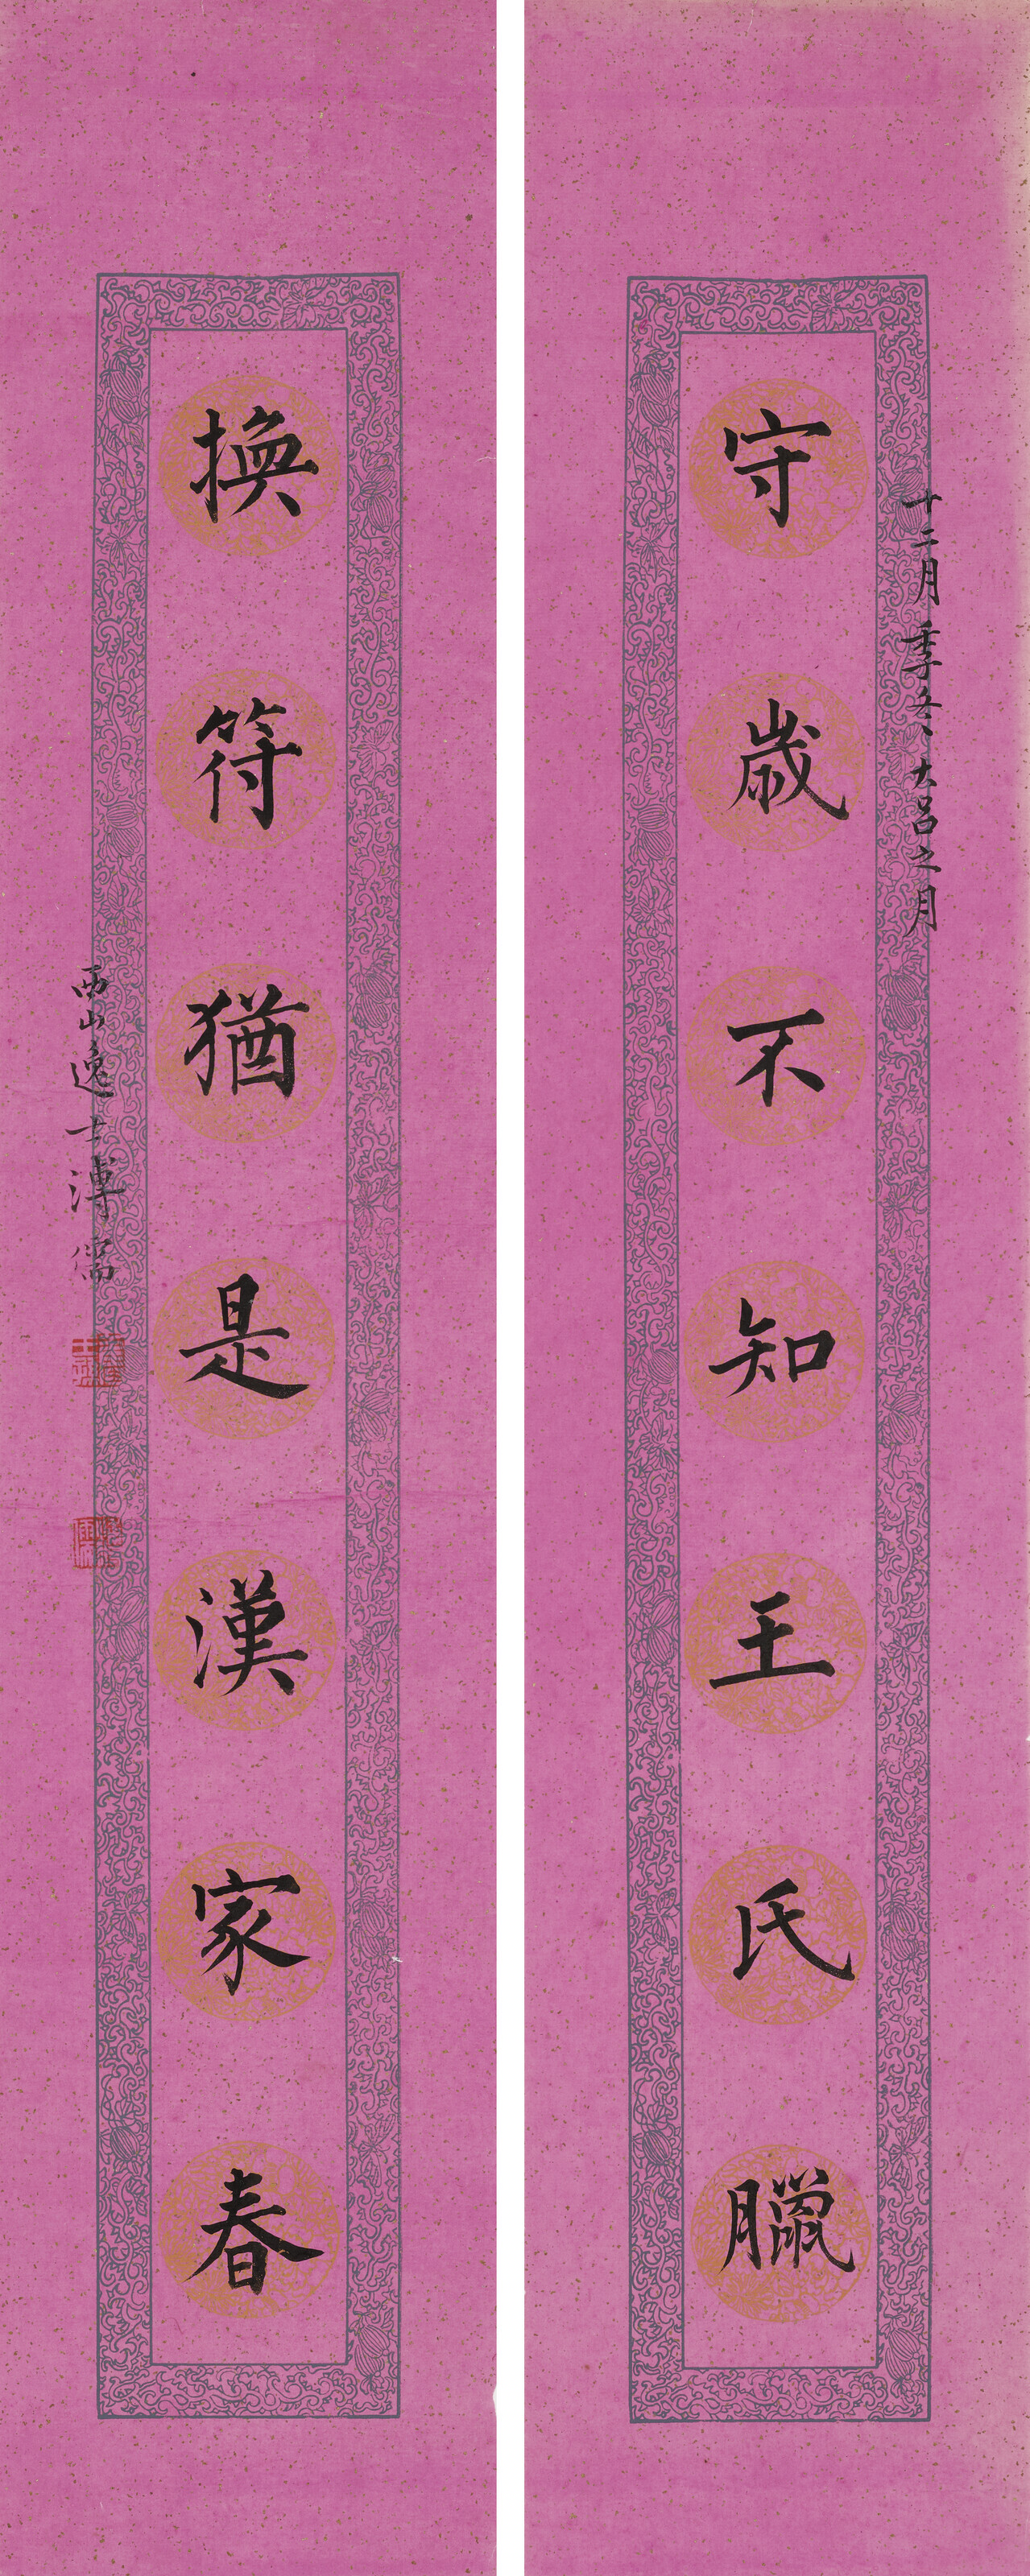 十二月季冬大呂之月
守歲不知王氏臘
換符猶是漢家春
西山逸士溥儒